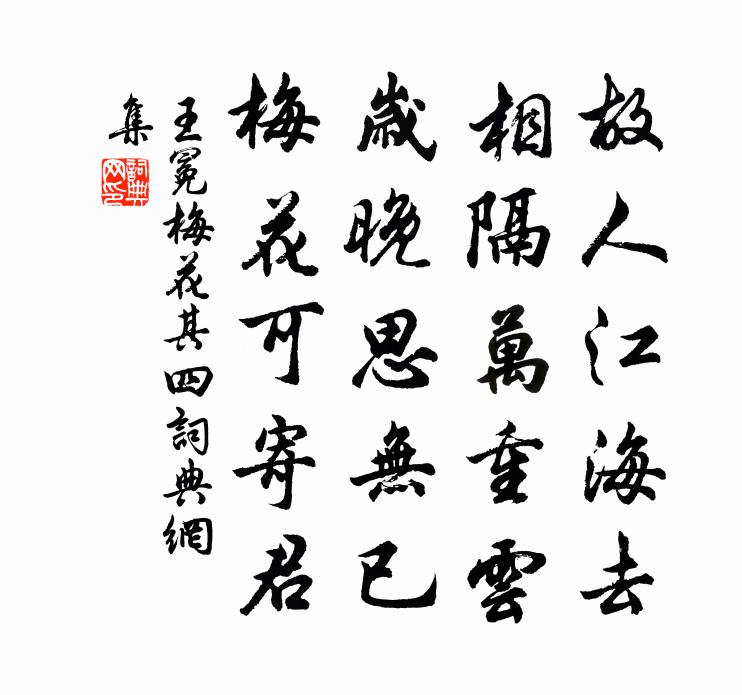 故人江海去
相隔萬重雲
歲晚思無已
梅花可寄君
王冕梅花其四詞典網
集
詞典
网印